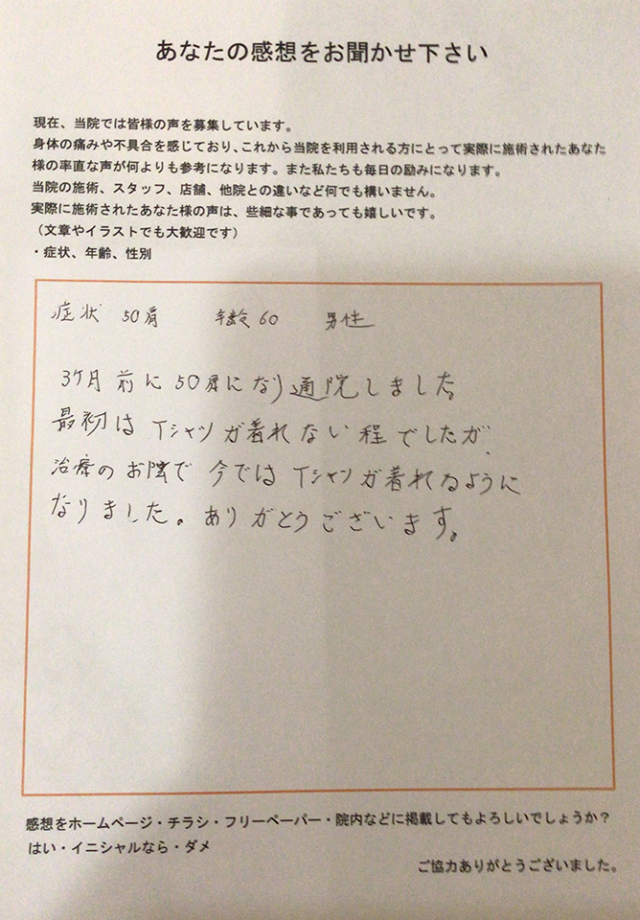 あなたの感想をお聞かせ下さい
現在、当院では皆様の声を募集しています。
身体の痛みや不具合を感じており、これから当院を利用される方にとって実際に施術されたあなた
様の率直な声が何よりも参考になります。また私たちも毎日の励みになります。
当院の施術、スタッフ、店舗、他院との違いなど何でも構いません。
実際に施術されたあなた様の声は、些細な事であっても嬉しいです。
（文章やイラストでも大歓迎です）
・症状、年齢、性別
症状 50肩 年齢60 男性
3ケ月前に50肩になり通院しました。
最初はTシャツが着れない程でしたが、
治療のお陰で今ではTシャツが着れるように
なりました。ありがとうございます。
感想をホームページ・チラシ・フリーペーパー・院内などに掲載してもよろしいでしょうか？
はい・イニシャルなら・ダメ
ご協力ありがとうございました。